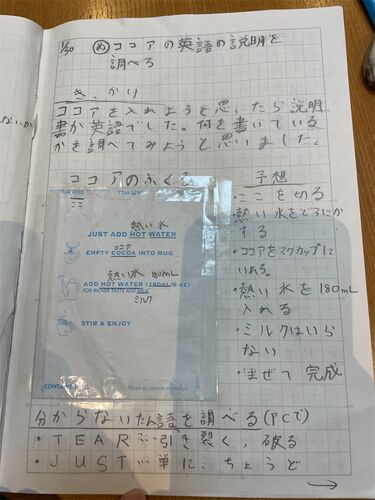 1/30 ㋱ ココアの英語の説明を
調べる
きっかけ
ココアを入れようと思ったら説明
書が英語でした。何を書いている
かを調べてみようと思いました。
ココアのふくろ
TEAR HERE
ここ
熱い水
JUST ADD HOT WATER
ココア
EMPTY COCOA INTO MUG
熱い水 180mL
ADD HOT WATER (180ML/6 oz)
FOR RICHER TASTE ADD MILK
ミルク
STIR & ENJOY
予想
・ここを切る
・熱い水をどうにか
する
・ココアをマグカップに
いれる。
・熱い水を180mL
入れる
・ミルクはいら
ない
・まぜて 完成
分からないたん語を調べる(PCで)
・TEAR…引き裂く、破る
・JUST…単に、ちょうど
→